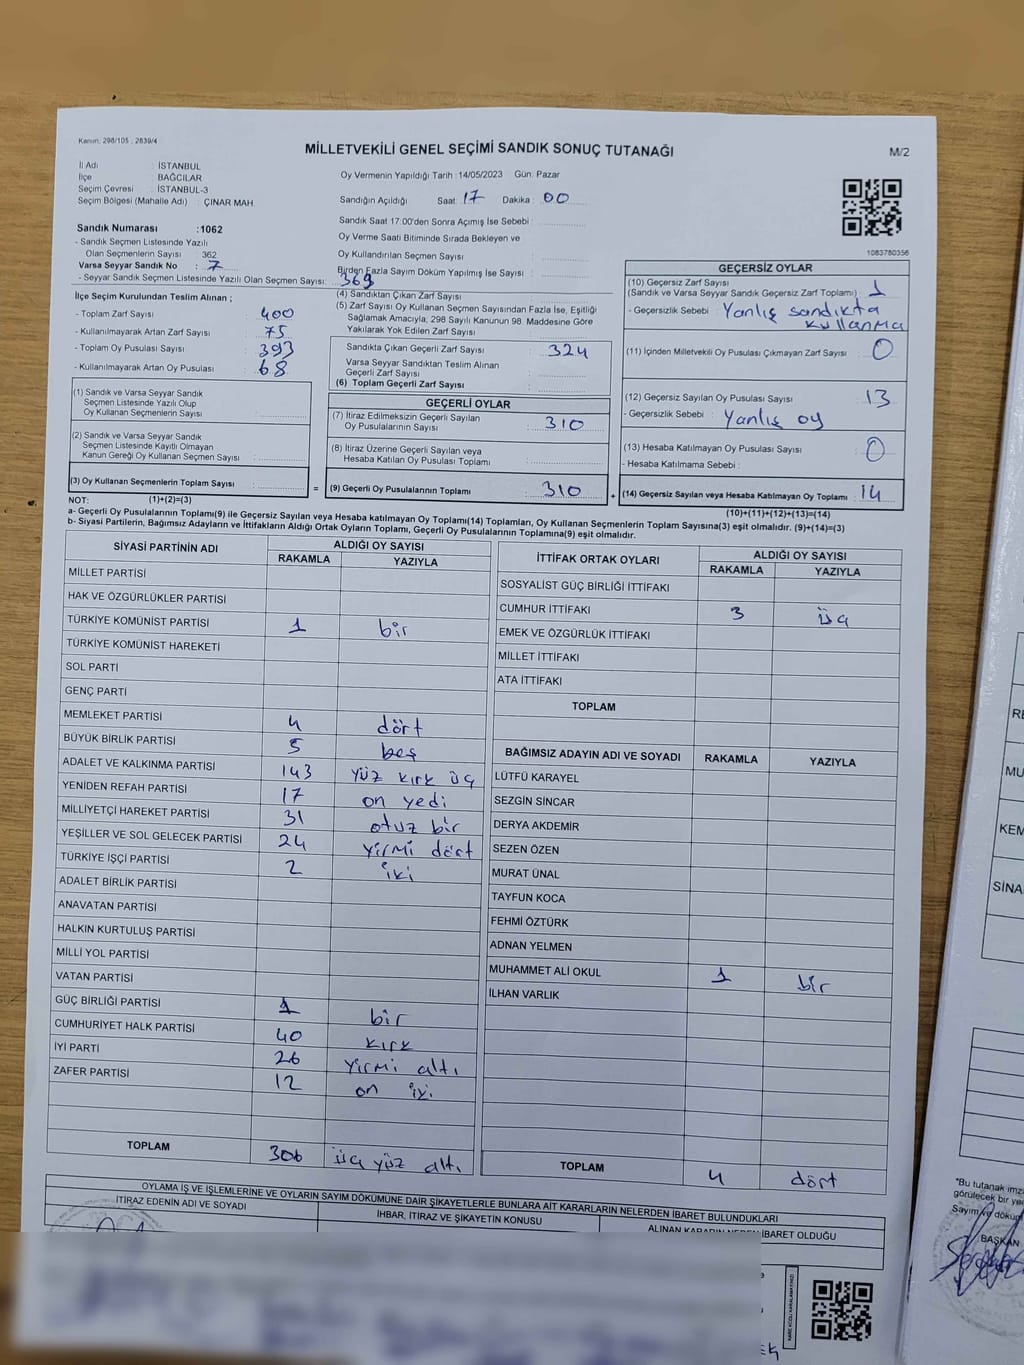 Kanun: 298/105 , 2839/4
MİLLETVEKİLİ GENEL SEÇİMİ SANDIK SONUÇ TUTANAĞI
M/2
İl Adı : İSTANBUL
İlçe : BAĞCILAR
Seçim Çevresi : İSTANBUL-3
Seçim Bölgesi (Mahalle Adı) : ÇINAR MAH.
Sandık Numarası :1062
- Sandık Seçmen Listesinde Yazılı
Olan Seçmenlerin Sayısı 362
Varsa Seyyar Sandık No : 7
- Seyyar Sandık Seçmen Listesinde Yazılı Olan Seçmen Sayısı:
Oy Vermenin Yapıldığı Tarih :14/05/2023 Gün: Pazar
Sandığın Açıldığı Saat: 17 Dakika : 00
Sandık Saat 17:00'den Sonra Açımış İse Sebebi :
Oy Verme Saati Bitiminde Sırada Bekleyen ve
Oy Kullandırılan Seçmen Sayısı :
Birden Fazla Sayım Döküm Yapılmış İse Sayısı :
369
1083780356
İlçe Seçim Kurulundan Teslim Alınan ;
- Toplam Zarf Sayısı : 400
- Kullanılmayarak Artan Zarf Sayısı : 75
- Toplam Oy Pusulası Sayısı : 393
- Kullanılmayarak Artan Oy Pusulası : 68
(1) Sandık ve Varsa Seyyar Sandık
Seçmen Listesinde Yazılı Olup
Oy Kullanan Seçmenlerin Sayısı :
(2) Sandık ve Varsa Seyyar Sandık
Seçmen Listesinde Kayıtlı Olmayan
Kanun Gereği Oy Kullanan Seçmen Sayısı :
(3) Oy Kullanan Seçmenlerin Toplam Sayısı :
(4) Sandıktan Çıkan Zarf Sayısı :
(5) Zarf Sayısı Oy Kullanan Seçmen Sayısından Fazla İse, Eşitliği
Sağlamak Amacıyla, 298 Sayılı Kanunun 98. Maddesine Göre
Yakılarak Yok Edilen Zarf Sayısı :
Sandıkta Çıkan Geçerli Zarf Sayısı : 324
Varsa Seyyar Sandıktan Teslim Alınan
Geçerli Zarf Sayısı :
(6) Toplam Geçerli Zarf Sayısı :
GEÇERLİ OYLAR
(7) İtiraz Edilmeksizin Geçerli Sayılan
Oy Pusulalarının Sayısı : 310
(8) İtiraz Üzerine Geçerli Sayılan veya
Hesaba Katılan Oy Pusulası Toplamı :
= (9) Geçerli Oy Pusulalarının Toplamı : 310 +
GEÇERSİZ OYLAR
(10) Geçersiz Zarf Sayısı
(Sandık ve Varsa Seyyar Sandık Geçersiz Zarf Toplamı) : 1
- Geçersizlik Sebebi : Yanlış sandıkta
kullanma
(11) İçinden Milletvekili Oy Pusulası Çıkmayan Zarf Sayısı : 0
(12) Geçersiz Sayılan Oy Pusulası Sayısı : 13
- Geçersizlik Sebebi : Yanlış oy
(13) Hesaba Katılmayan Oy Pusulası Sayısı : 0
- Hesaba Katılmama Sebebi :
(14) Geçersiz Sayılan veya Hesaba Katılmayan Oy Toplamı : 14
NOT: (1)+(2)=(3)
(10)+(11)+(12)+(13)=(14)
a- Geçerli Oy Pusulalarının Toplamı(9) ile Geçersiz Sayılan veya Hesaba katılmayan Oy Toplamı(14) Toplamları, Oy Kullanan Seçmenlerin Toplam Sayısına(3) eşit olmalıdır. (9)+(14)=(3)
b- Siyasi Partilerin, Bağımsız Adayların ve İttifakların Aldığı Ortak Oyların Toplamı, Geçerli Oy Pusulalarının Toplamına(9) eşit olmalıdır.
SİYASİ PARTİNİN ADI ALDIĞI OY SAYISI
RAKAMLA YAZIYLA
MİLLET PARTİSİ
HAK VE ÖZGÜRLÜKLER PARTİSİ
TÜRKİYE KOMÜNİST PARTİSİ 1 bir
TÜRKİYE KOMÜNİST HAREKETİ
SOL PARTİ
GENÇ PARTİ
MEMLEKET PARTİSİ 4 dört
BÜYÜK BİRLİK PARTİSİ 5 beş
ADALET VE KALKINMA PARTİSİ 143 yüz kırk üç
YENİDEN REFAH PARTİSİ 17 on yedi
MİLLİYETÇİ HAREKET PARTİSİ 31 otuz bir
YEŞİLLER VE SOL GELECEK PARTİSİ 24 yirmi dört
TÜRKİYE İŞÇİ PARTİSİ 2 iki
ADALET BİRLİK PARTİSİ
ANAVATAN PARTİSİ
HALKIN KURTULUŞ PARTİSİ
MİLLİ YOL PARTİSİ
VATAN PARTİSİ
GÜÇ BİRLİĞİ PARTİSİ 1 bir
CUMHURİYET HALK PARTİSİ 40 kırk
İYİ PARTİ 26 yirmi altı
ZAFER PARTİSİ 12 on iki
TOPLAM 306 üç yüz altı
İTTİFAK ORTAK OYLARI ALDIĞI OY SAYISI
RAKAMLA YAZIYLA
SOSYALİST GÜÇ BİRLİĞİ İTTİFAKI
CUMHUR İTTİFAKI 3 üç
EMEK VE ÖZGÜRLÜK İTTİFAKI
MİLLET İTTİFAKI
ATA İTTİFAKI
TOPLAM
BAĞIMSIZ ADAYIN ADI VE SOYADI RAKAMLA YAZIYLA
LÜTFÜ KARAYEL
SEZGİN SİNCAR
DERYA AKDEMİR
SEZEN ÖZEN
MURAT ÜNAL
TAYFUN KOCA
FEHMİ ÖZTÜRK
ADNAN YELMEN
MUHAMMET ALİ OKUL 1 bir
İLHAN VARLIK
TOPLAM 4 dört
OYLAMA İŞ VE İŞLEMLERİNE VE OYLARIN SAYIM DÖKÜMÜNE DAİR ŞİKAYETLERLE BUNLARA AİT KARARLARIN NELERDEN İBARET BULUNDUKLARI
İTİRAZ EDENİN ADI VE SOYADI
İHBAR, İTİRAZ VE ŞİKAYETİN KONUSU
ALINAN KARARIN NEDEN İBARET OLDUĞU
RE
MU
KEM
SİNA
"Bu tutanak imz
görülecek bir ye
Sayım ve dökün
BAŞKAN